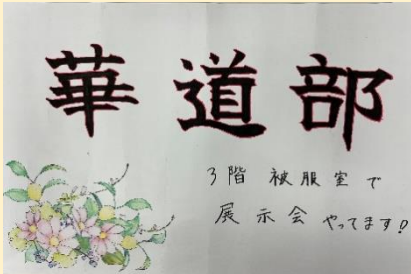 華道部
3階 被服室で
展示会 やってます!